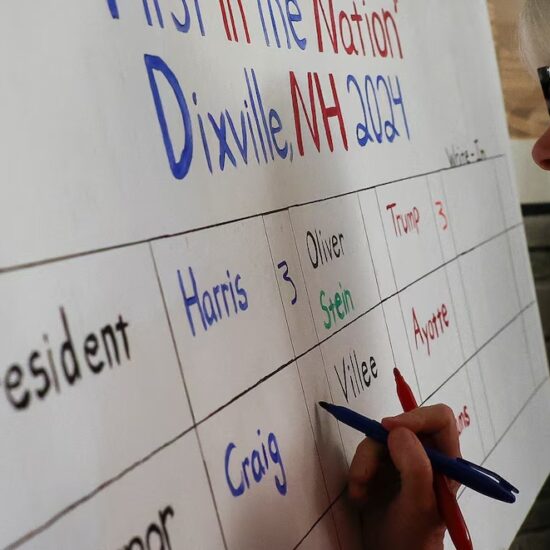 First in the Nation"
Dixville, NH 2024
Write-In
esident Harris 3 Oliver Trump 3
Stein
nor Craig Villee Ayotte
ns